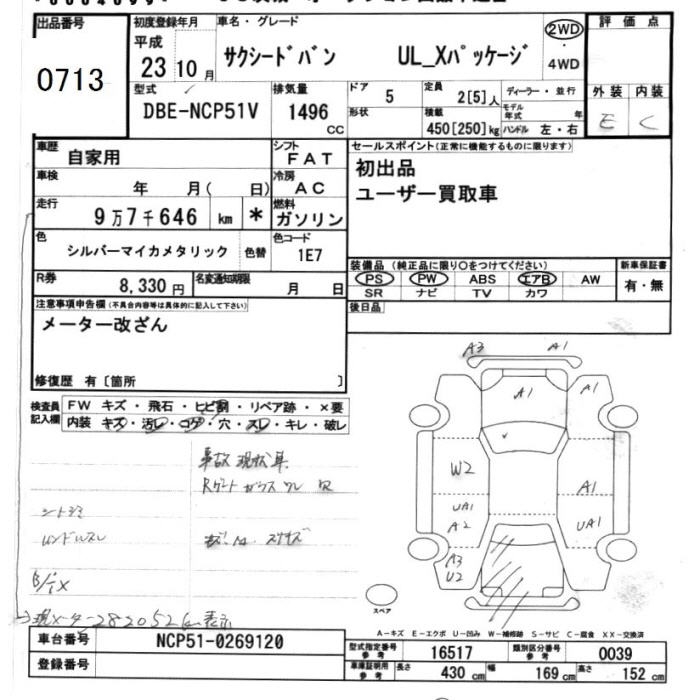 出品番号
0713
初度登録年月
平成
23 10 月
車名・グレード
サクシードバン UL_Xパッケージ
2WD
・
4WD
評価点
外装 内装
E C
型式
DBE-NCP51V
排気量
1496
CC
ドア
5
形状
定員
2[5]人
積載
450[250]kg
ディーラー・並行
モデル年式 年
ハンドル 左・右
車歴
自家用
シフト
FAT
車検
年 月( 日)
冷房
AC
走行
9万7千646 km *
燃料
ガソリン
色
シルバーマイカメタリック 色替
色コード
1E7
R券
8,330円
名変通知期限
月 日
セールスポイント(正常に機能するものに限ります)
初出品
ユーザー買取車
装備品 (純正品に限り○をつけてください)
PS PW ABS エアB AW
SR ナビ TV カワ
新車保証書
有・無
後日品
注意事項申告欄(不具合内容等は具体的に記入して下さい)
メーター改ざん
修復歴 有〔箇所 〕
検査員記入欄
FW キズ・飛石・ヒビ割・リペア跡・×要
内装 キズ・汚レ・コゲ・穴・スレ・キレ・破レ
事故現状車
シートシミ
ハンドルスレ
現メーター282052k表示
A3 A1
A1 A1
W2
A1
UA1
A2
UA1
A3
U2
スペア
A-キズ E-エクボ U-凹み W-補修跡 S-サビ C-腐食 XX-交換済
車台番号
NCP51-0269120
登録番号
型式指定番号
参考
16517
類別区分番号
参考
0039
車庫証明用
参考
長さ 430 cm 幅 169 cm 高さ 152 cm